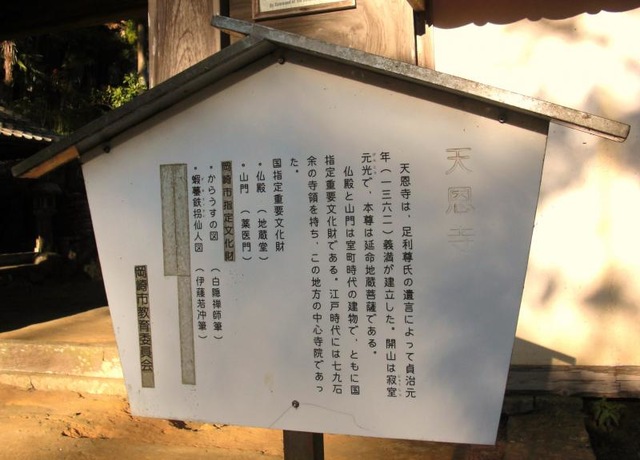 天恩寺
天恩寺は、足利尊氏の遺言によって貞治元
年(一三六二)義満が建立した。開山は寂室
元光で、本尊は延命地蔵菩薩である。
仏殿と山門は室町時代の建物で、ともに国
指定重要文化財である。江戸時代には七九石
余の寺領を持ち、この地方の中心寺院であっ
た。
国指定重要文化財
・仏殿 (地蔵堂)
・山門 (薬医門)
岡崎市指定文化財
・からうすの図 (白隠禅師筆)
・蝦蟇鉄拐仙人図 (伊藤若冲筆)
岡崎市教育委員会